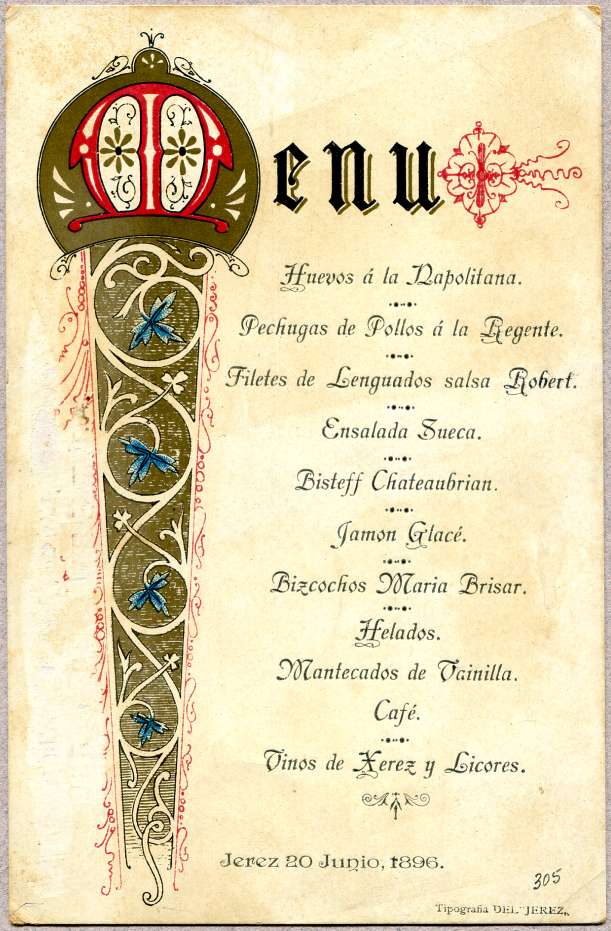 Menu
Huevos á la Napolitana.
Pechugas de Pollos á la Regente.
Filetes de Lenguados salsa Robert.
Ensalada Sueca.
Bisteff Chateaubrian.
Jamon Glacé.
Bizcochos Maria Brisar.
Helados.
Mantecados de Vainilla.
Café.
Vinos de Xerez y Licores.
Jerez 20 Junio, 1896.
305
Tipografia DEL JEREZ.